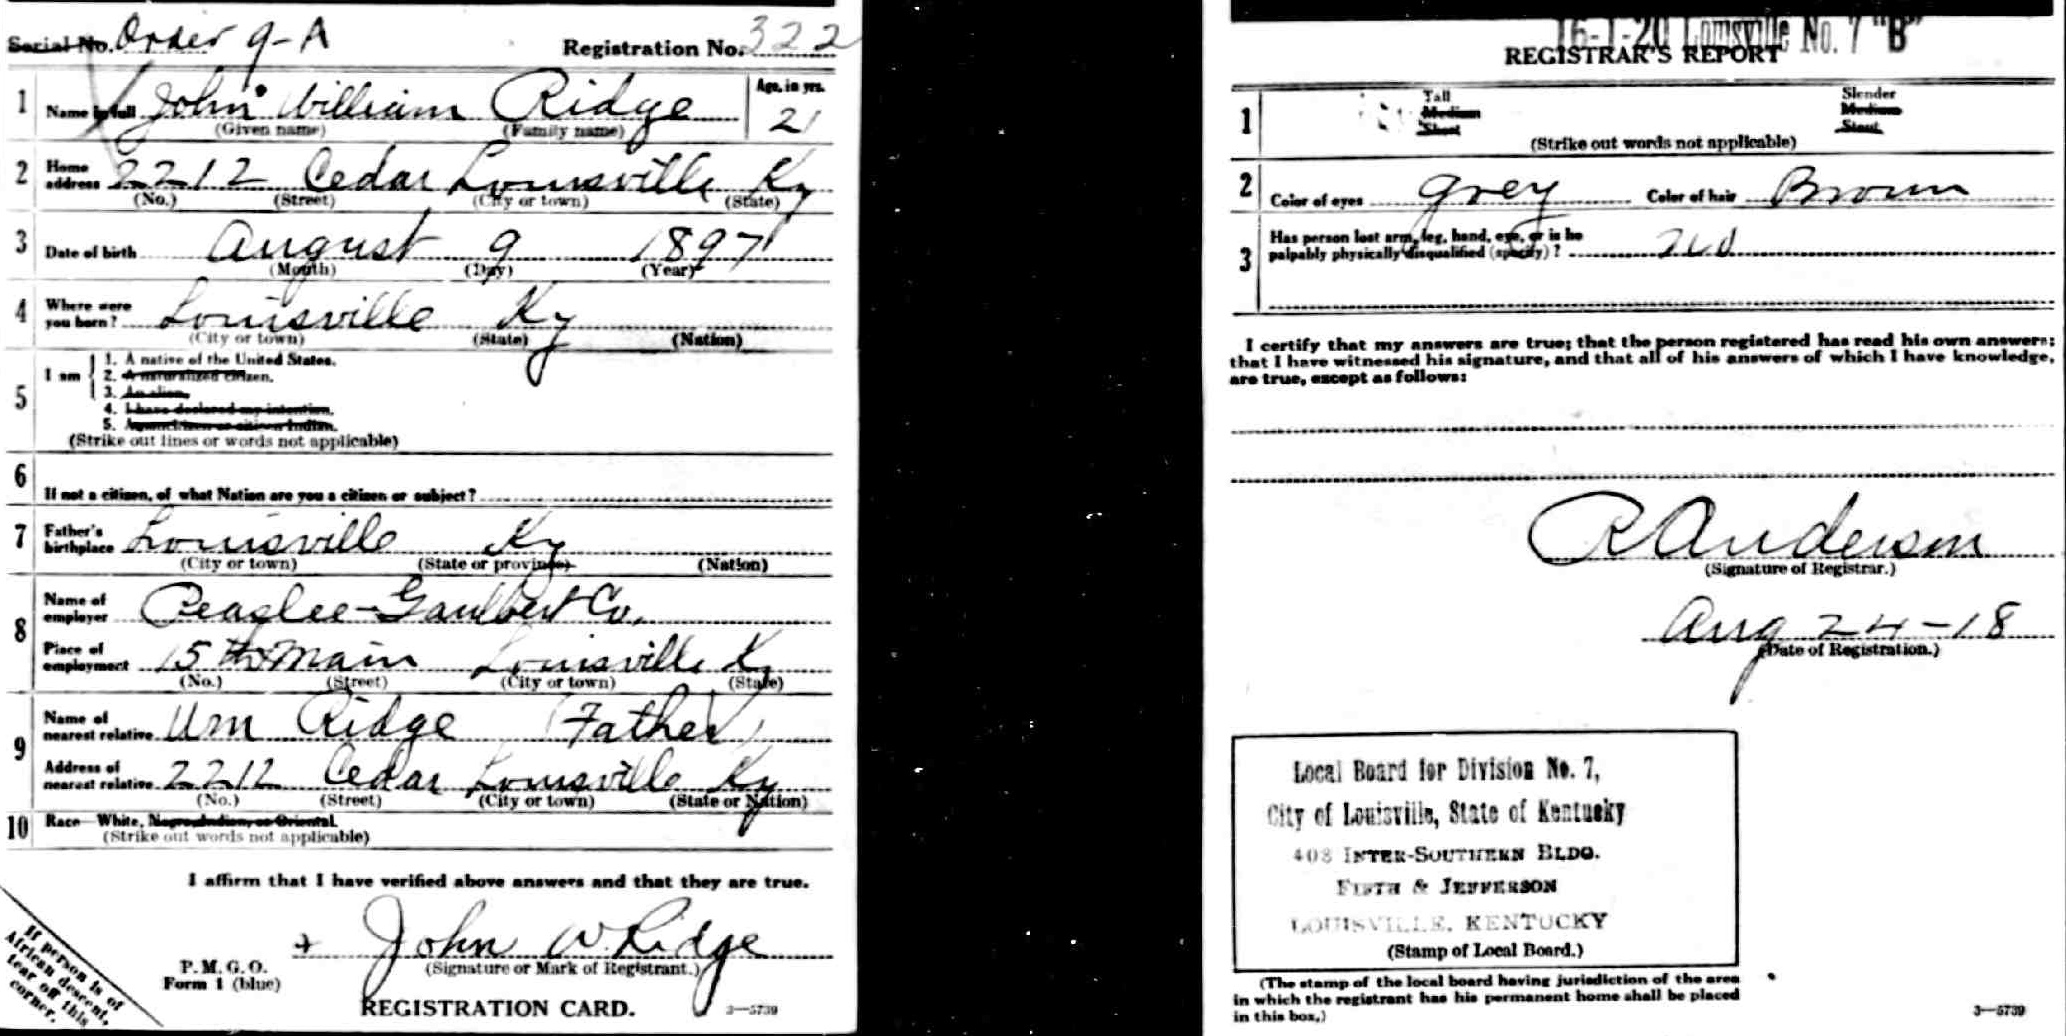 Serial No. Order 9-A Registration No. 322
1 Name in full John William Ridge Age, in yrs. 21
(Given name) (Family name)
2 Home address 2212 Cedar Louisville Ky
(No.) (Street) (City or town) (State)
3 Date of birth August 9 1897
(Month) (Day) (Year)
4 Where were you born? Louisville Ky
(City or town) (State) (Nation)
5 I am
1. A native of the United States.
2. A naturalized citizen.
3. An alien.
4. I have declared my intention.
5. A noncitizen or citizen Indian.
(Strike out lines or words not applicable)
6 If not a citizen, of what Nation are you a citizen or subject?
7 Father's birthplace Louisville Ky
(City or town) (State or province) (Nation)
8 Name of employer Peaslee-Gaulbert Co.
Place of employment 15th Main Louisville Ky
(No.) (Street) (City or town) (State)
9 Name of nearest relative Wm Ridge (Father)
Address of nearest relative 2212 Cedar Louisville Ky
(No.) (Street) (City or town) (State or Nation)
10 Race—White, Negro, Indian, or Oriental.
(Strike out words not applicable)
I affirm that I have verified above answers and that they are true.
John W Ridge
(Signature or Mark of Registrant.)
P. M. G. O.
Form 1 (blue)
REGISTRATION CARD. 3—5739
If person is of
African descent,
tear off this
corner.
16-1-20 Louisville No. 7 "B"
REGISTRAR'S REPORT
1 Tall Slender
Medium Medium
Short Stout
(Strike out words not applicable)
2 Color of eyes grey Color of hair Brown
3 Has person lost arm, leg, hand, eye, or is he
palpably physically disqualified (specify)? no
I certify that my answers are true; that the person registered has read his own answers;
that I have witnessed his signature, and that all of his answers of which I have knowledge,
are true, except as follows:
R Anderson
(Signature of Registrar.)
Aug 24-18
(Date of Registration.)
Local Board for Division No. 7,
City of Louisville, State of Kentucky
403 INTER-SOUTHERN BLDG.
FIFTH & JEFFERSON
LOUISVILLE, KENTUCKY
(Stamp of Local Board.)
(The stamp of the local board having jurisdiction of the area
in which the registrant has his permanent home shall be placed
in this box.)
3—5739